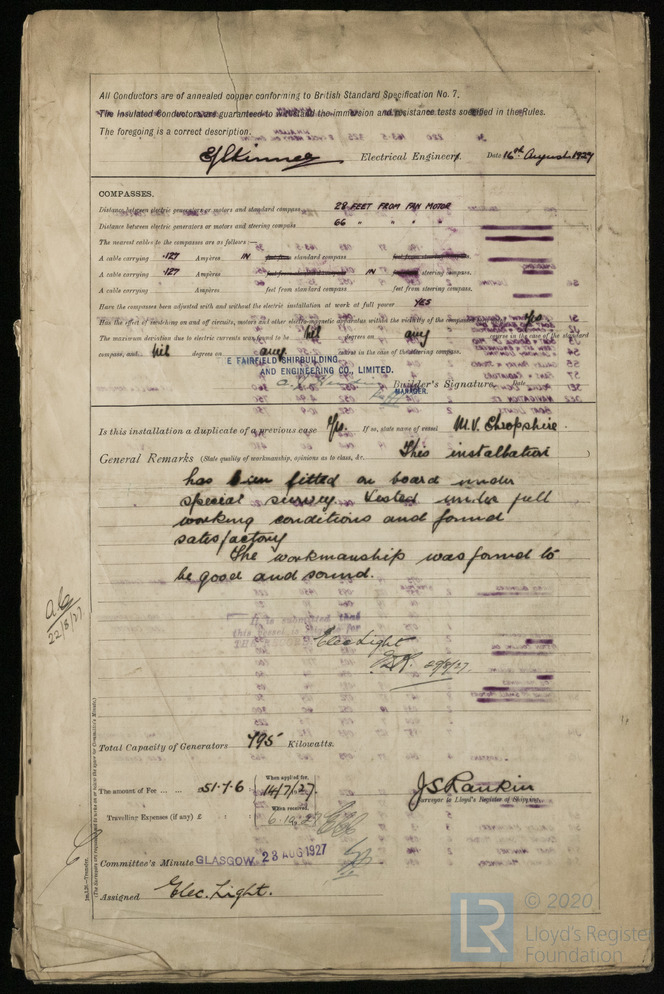 All Conductors are of annealed copper conforming to British Standard Specification No. 7.
The Insulated Conductors are guaranteed to withstand the immersion and resistance tests specified in the Rules.
The foregoing is a correct description.
Electrical Engineers. Date 16th August 1927
COMPASSES.
Distance between electric generators or motors and standard compass 28 FEET FROM FAN MOTOR
Distance between electric generators or motors and steering compass 66 " " " "
The nearest cables to the compasses are as follows:—
A cable carrying .127 Ampères IN standard compass
A cable carrying .127 Ampères IN steering compass.
A cable carrying Ampères feet from standard compass feet from steering compass.
Have the compasses been adjusted with and without the electric installation at work at full power YES
Has the effect of switching on and off circuits, motors and other electro-magnetic apparatus within the vicinity of the compasses Yes
The maximum deviation due to electric currents was found to be Nil degrees on any degree in the case of the standard
compass, and Nil degrees on any course in the case of the steering compass.
E FAIRFIELD SHIPBUILDING
AND ENGINEERING CO., LIMITED.
Builder's Signature. Date
MANAGER.
Is this installation a duplicate of a previous case Yes. If so, state name of vessel M.V. Shropshire.
General Remarks (State quality of workmanship, opinions as to class, &c. This installation
has been fitted on board under
special survey tested under full
working conditions and found
satisfactory
The workmanship was found to
be good and sound.
22/8/27
It is submitted that
this vessel is for
THE RECORD
Elec Light
29/8/27.
Total Capacity of Generators 795 Kilowatts.
The amount of Fee ... ... £51.7.6
When applied for,
14/7/27.
When received,
Travelling Expenses (if any) £
J S Rankin
Surveyor to Lloyd's Register of Shipping.
Committee's Minute GLASGOW 23 AUG 1927
Assigned Elec. Light.
LR
© 2020
Lloyd's Register
Foundation